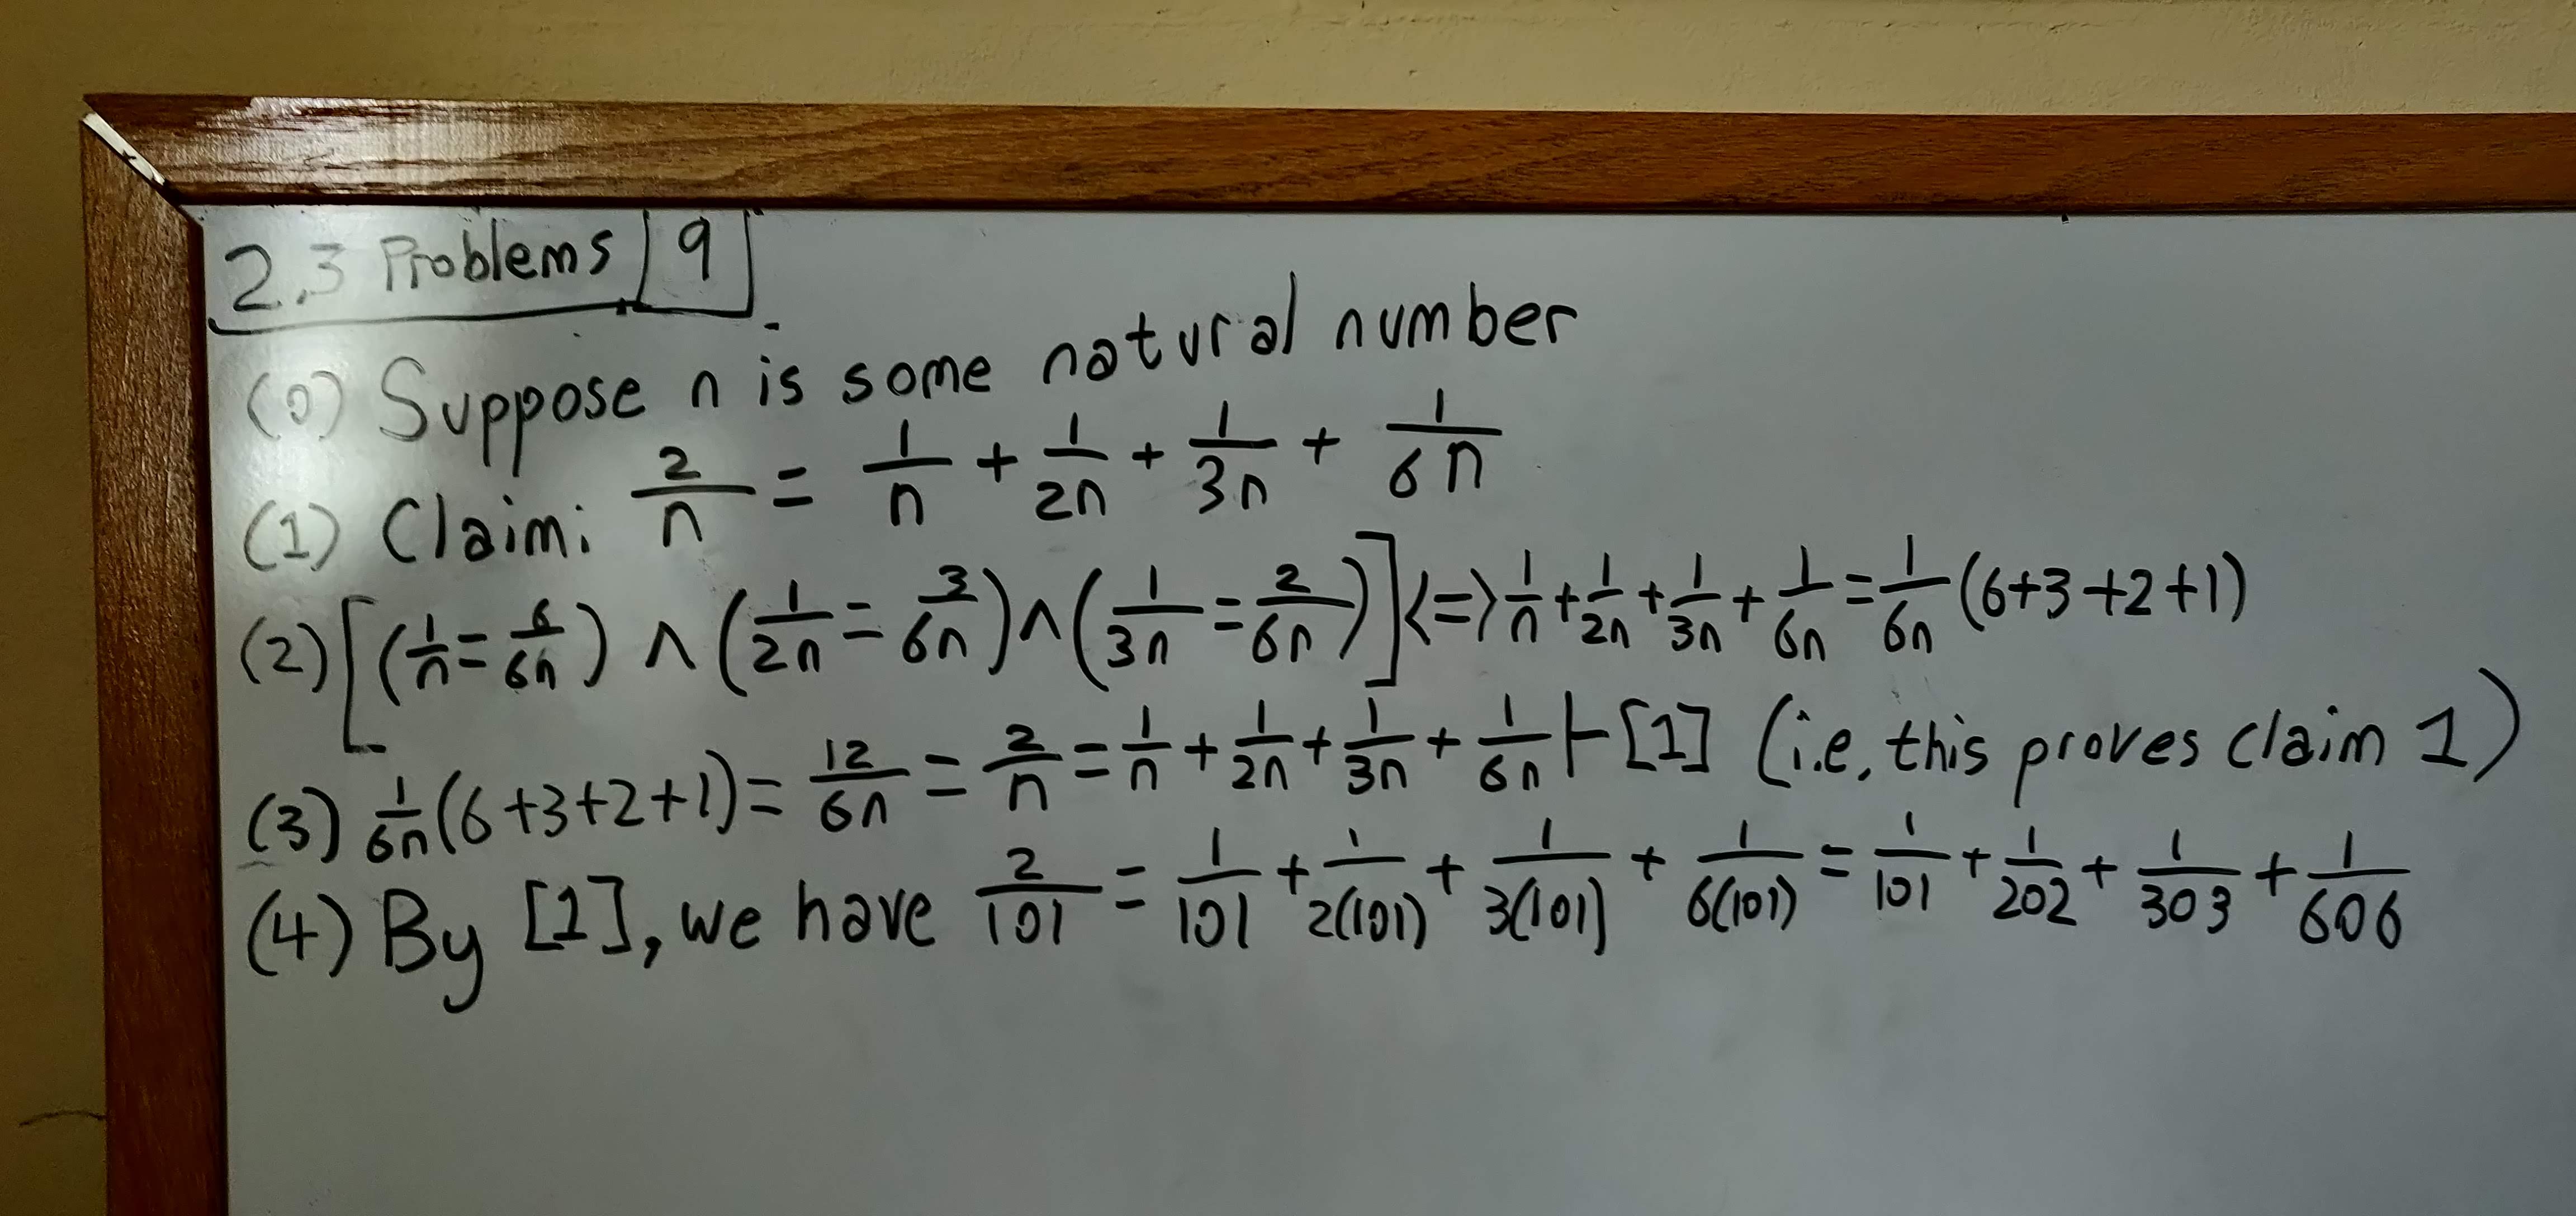 2.3 Problems | 9
(0) Suppose n is some natural number
(1) Claim: 2/n = 1/n + 1/2n + 1/3n + 1/6n
(2) [(1/n = 6/6n) ∧ (1/2n = 3/6n) ∧ (1/3n = 2/6n)] <=> 1/n + 1/2n + 1/3n + 1/6n = 1/6n (6+3+2+1)
(3) 1/6n (6+3+2+1) = 12/6n = 2/n = 1/n + 1/2n + 1/3n + 1/6n ⊢ [1] (i.e, this proves claim 1)
(4) By [1], we have 2/101 = 1/101 + 1/2(101) + 1/3(101) + 1/6(101) = 1/101 + 1/202 + 1/303 + 1/606